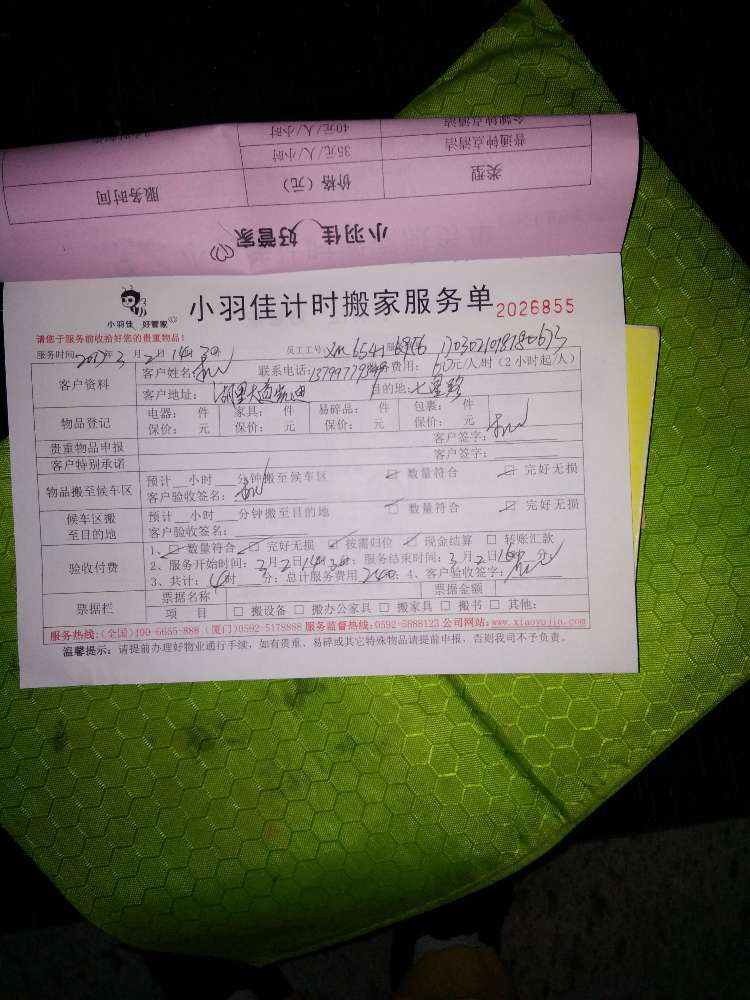 全频钟点清洁 40元/人/小时
普通钟点清洁 35元/人/小时
类型 价格（元） 服务时间
小羽佳 好管家
小羽佳 好管家
小羽佳计时搬家服务单 2026855
请您于服务前收拾好您的贵重物品！
服务时间：2017年3月2日14时30分 员工工号：XM6541
客户资料 客户姓名： 联系电话： 费用：60元/人/时（2小时起/人）
客户地址：湖里大道 目的地：七星路
物品登记 电器： 件 家具： 件 易碎品： 件 包装： 件
保价： 元 保价： 元 保价： 元 保价： 元
贵重物品申报 客户签字：
客户特别承诺 客户签字：
物品搬至候车区 预计 小时 分钟搬至候车区 数量符合 完好无损
客户验收签名：
候车区搬至目的地 预计 小时 分钟搬至目的地 数量符合 完好无损
客户验收签名：
验收付费 1、 数量符合 完好无损 按需归位 现金结算 转账汇款
2、服务开始时间：3月2日14时30分；服务结束时间：3月2日 时 分；
3、共计：4时 分；总计服务费用240；4、客户验收签字：
票据栏 票据名称 票据金额
项 目 □ 搬设备 □ 搬办公家具 □ 搬家具 □ 搬书 □ 其他：
服务热线：（全国）400-6655-888（厦门）0592-5178888 服务监督热线：0592-5888123 公司网站：www.xiaoyujia.com
温馨提示：请提前办理好物业通行手续，如有贵重、易碎或其它特殊物品请提前申报，否则我司不予负责。